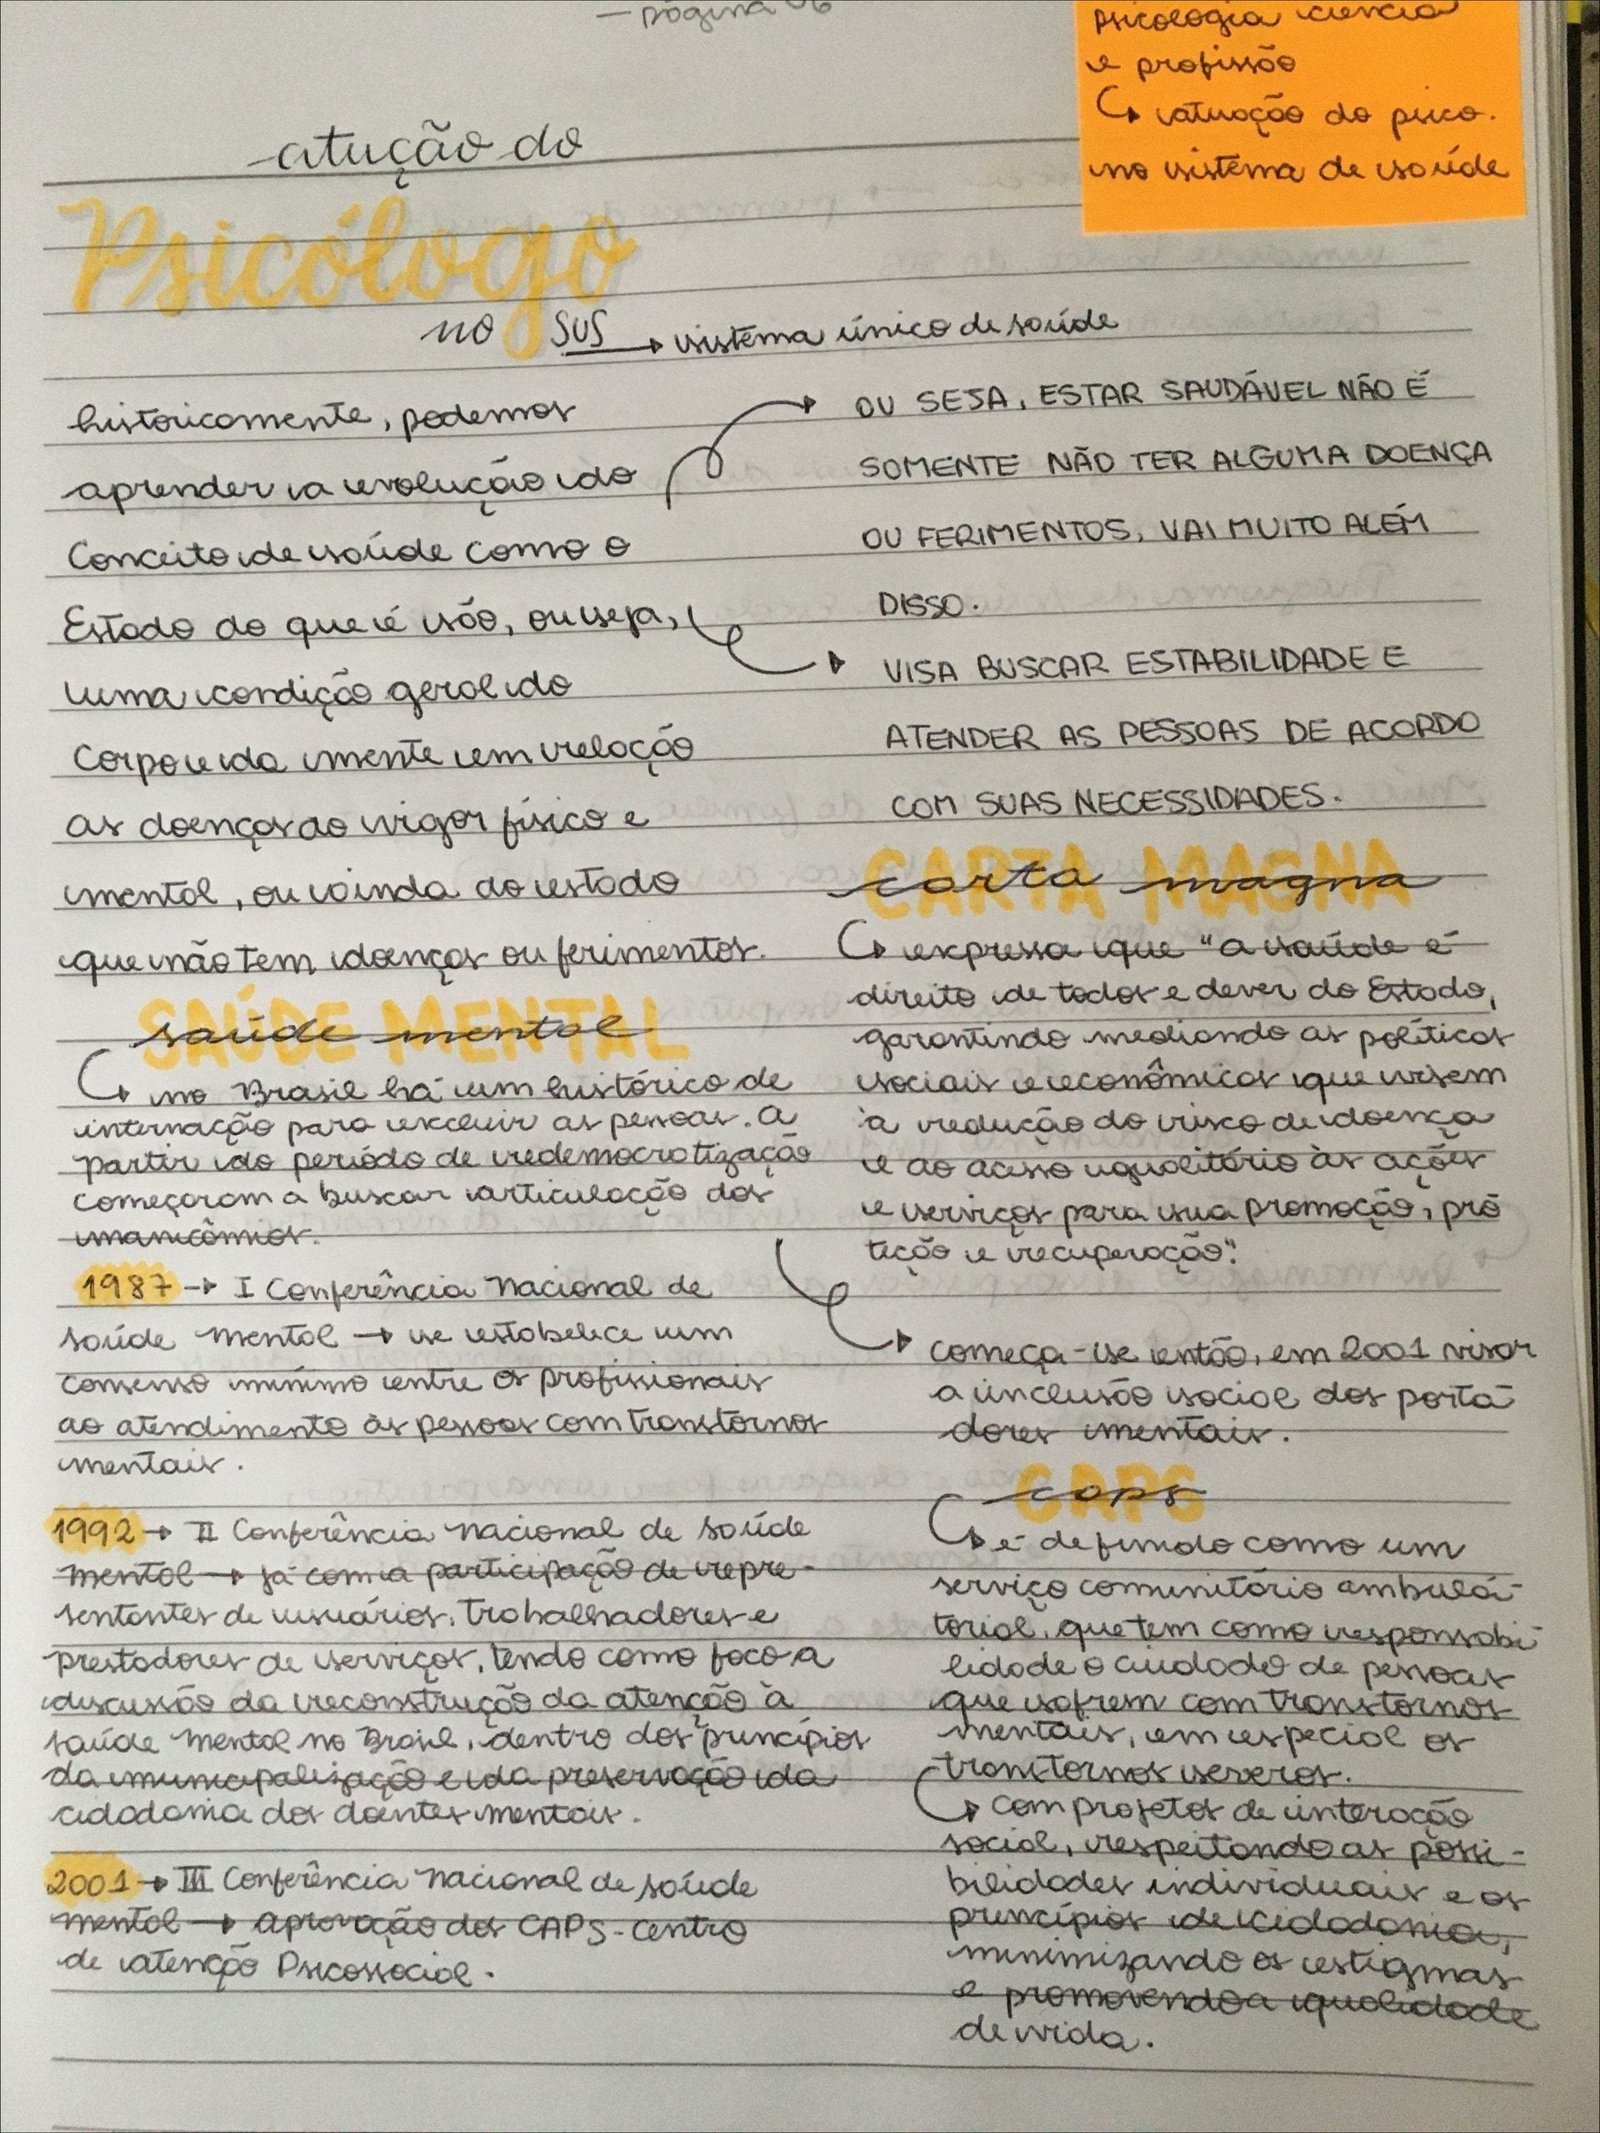 — página 06
psicologia ciência
e profissão
↳ atuação do psico.
no sistema de saúde
atução do
Psicólogo
no SUS → sistema único de saúde
historicamente, podemos
aprender a evolução do
conceito de saúde como o
Estado do que é são, ou seja,
uma condição geral do
corpo e da mente em relação
as doenças ao vigor físico e
mental, ou ainda ao estado
que não tem doenças ou ferimentos.
SAÚDE MENTAL
saúde mental
↳ no Brasil há um histórico de
internação para excluir as pessoas. a
partir do período de redemocratização
começaram a buscar articulação dos
manicômios.
1987 → I Conferência Nacional de
saúde mental → se estabelece um
consenso mínimo entre os profissionais
ao atendimento às pessoas com transtornos
mentais.
1992 → II Conferência nacional de saúde
mental → já com a participação de repre-
sentantes de usuários, trabalhadores e
prestadores de serviços, tendo como foco a
discussão da reconstrução da atenção à
saúde mental no Brasil, dentro dos princípios
da municipalização e da preservação da
cidadania dos doentes mentais.
2001 → III Conferência nacional de saúde
mental → aprovação dos CAPS - centro
de atenção Psicossocial.
OU SEJA, ESTAR SAUDÁVEL NÃO É
SOMENTE NÃO TER ALGUMA DOENÇA
OU FERIMENTOS, VAI MUITO ALÉM
DISSO.
VISA BUSCAR ESTABILIDADE E
ATENDER AS PESSOAS DE ACORDO
COM SUAS NECESSIDADES.
CARTA MAGNA
carta magna
↳ expressa que "a saúde é
direito de todos e dever do Estado,
garantindo mediando as políticas
sociais e econômicas que visem
à redução do risco de doença
e ao acesso igualitário às ações
e serviços para sua promoção, pro
teção e recuperação".
começa-se então, em 2001 visar
a inclusão social dos porta-
dores mentais.
CAPS
caps
↳ é definido como um
serviço comunitário ambula-
torial, que tem como responsabi-
lidade o cuidado de pessoas
que sofrem com transtornos
mentais, em especial os
transtornos severos.
↳ com projetos de interação
social, respeitando as possi-
bilidades individuais e os
princípios de cidadania,
minimizando os estigmas
e promovendo a igualidade
de vida.